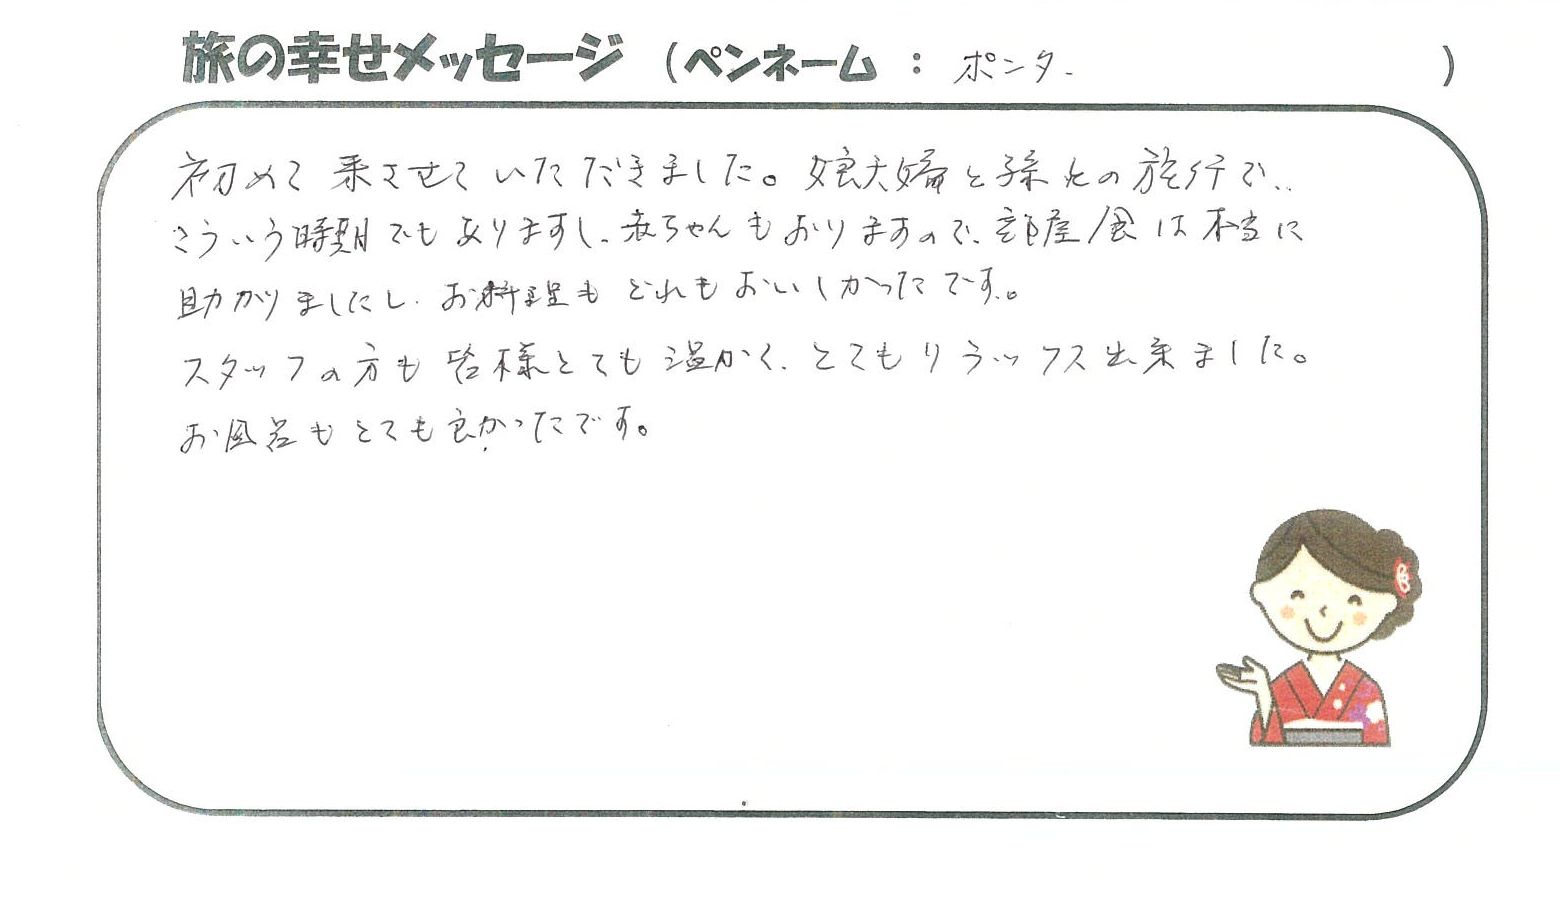 旅の幸せメッセージ (ペンネーム : ポンタ )
初めて来させていただきました。娘夫婦と孫との旅行で、
こういう時期でもありますし、赤ちゃんもおりますので、部屋食は本当に
助かりましたし、お料理もどれもおいしかったです。
スタッフの方も皆様とても温かく、とてもリラックス出来ました。
お風呂もとても良かったです。